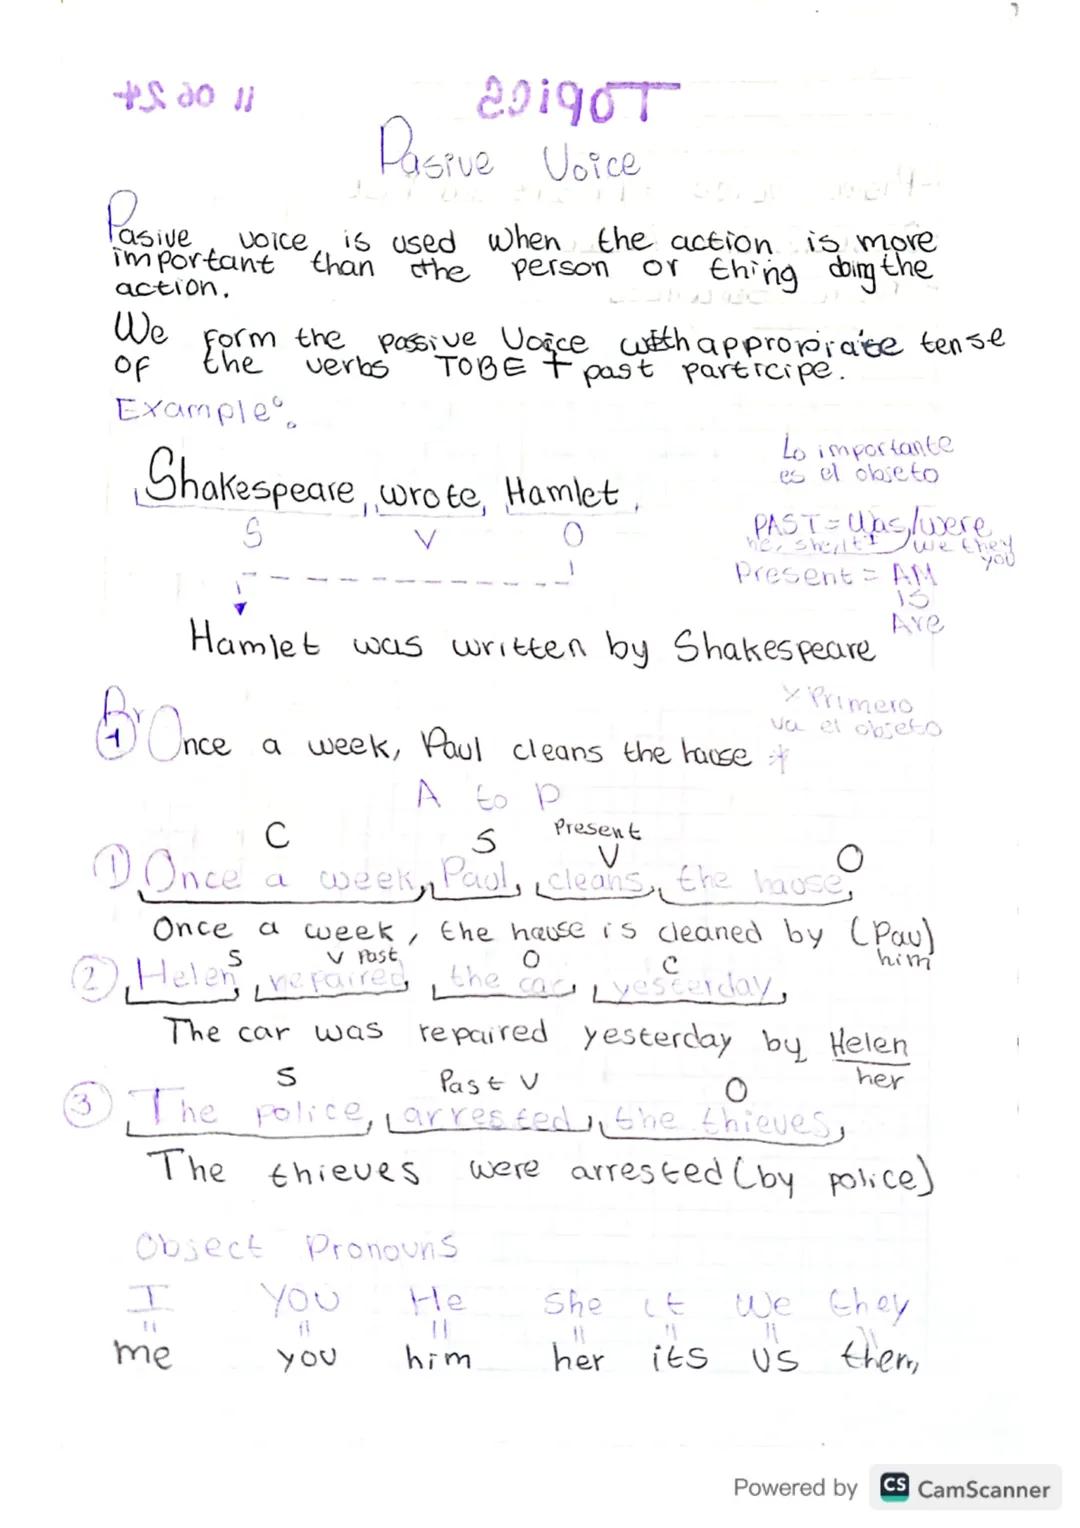 11 06 24 Topics
Pasive Voice
Pasive voice is used when the action is more
important than the person or thing doing the
action.
We form the passive Voice with appropriate tense
of the verbs TOBE + past participe.
Example:
Lo importante
es el objeto
Shakespeare wrote Hamlet
S V O
PAST = Was/were
he, she, it I we they
you
Present = AM
is
Are
Hamlet was written by Shakespeare
y Primero
va el objeto
1 Once a week, Paul cleans the hause *
A to P
C S Present V O
1) Once a week, Paul cleans the hause
Once a week, the hause is cleaned by (Paul)
him
S V Past O C
2 Helen repaired the car yesterday
The car was repaired yesterday by Helen
her
S Past V O
3 The police arrested the thieves
The thieves were arrested (by police)
Object Pronouns
I YOU He She it We they
me you him her its US them
Powered by CS CamScanner